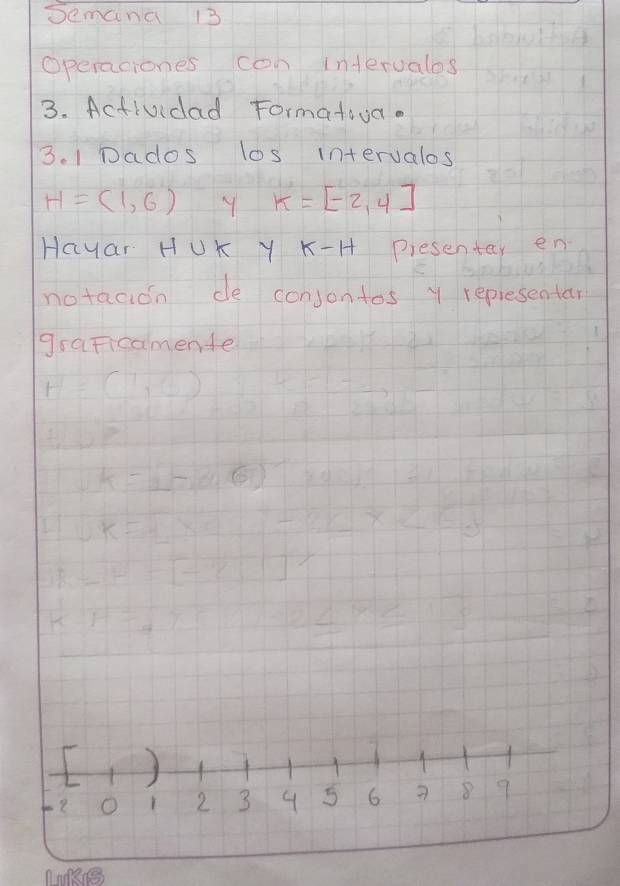 Semana 13
Operaciones con intervalos
3. Actividad Formativa.
3.1 Dados los intervalos
H = (1,6) y K = [-2,4]
Hayar H U K y K-H Presentar en
notación de conjontos y representar
graficamente
H = (1,6)
-2 0 1 2 3 4 5 6 7 8 9
LUKIS